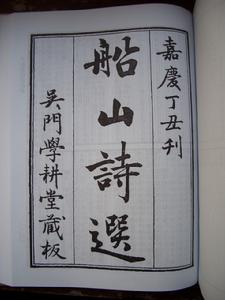 嘉慶丁丑刊
船山詩選
吴門學耕堂藏板